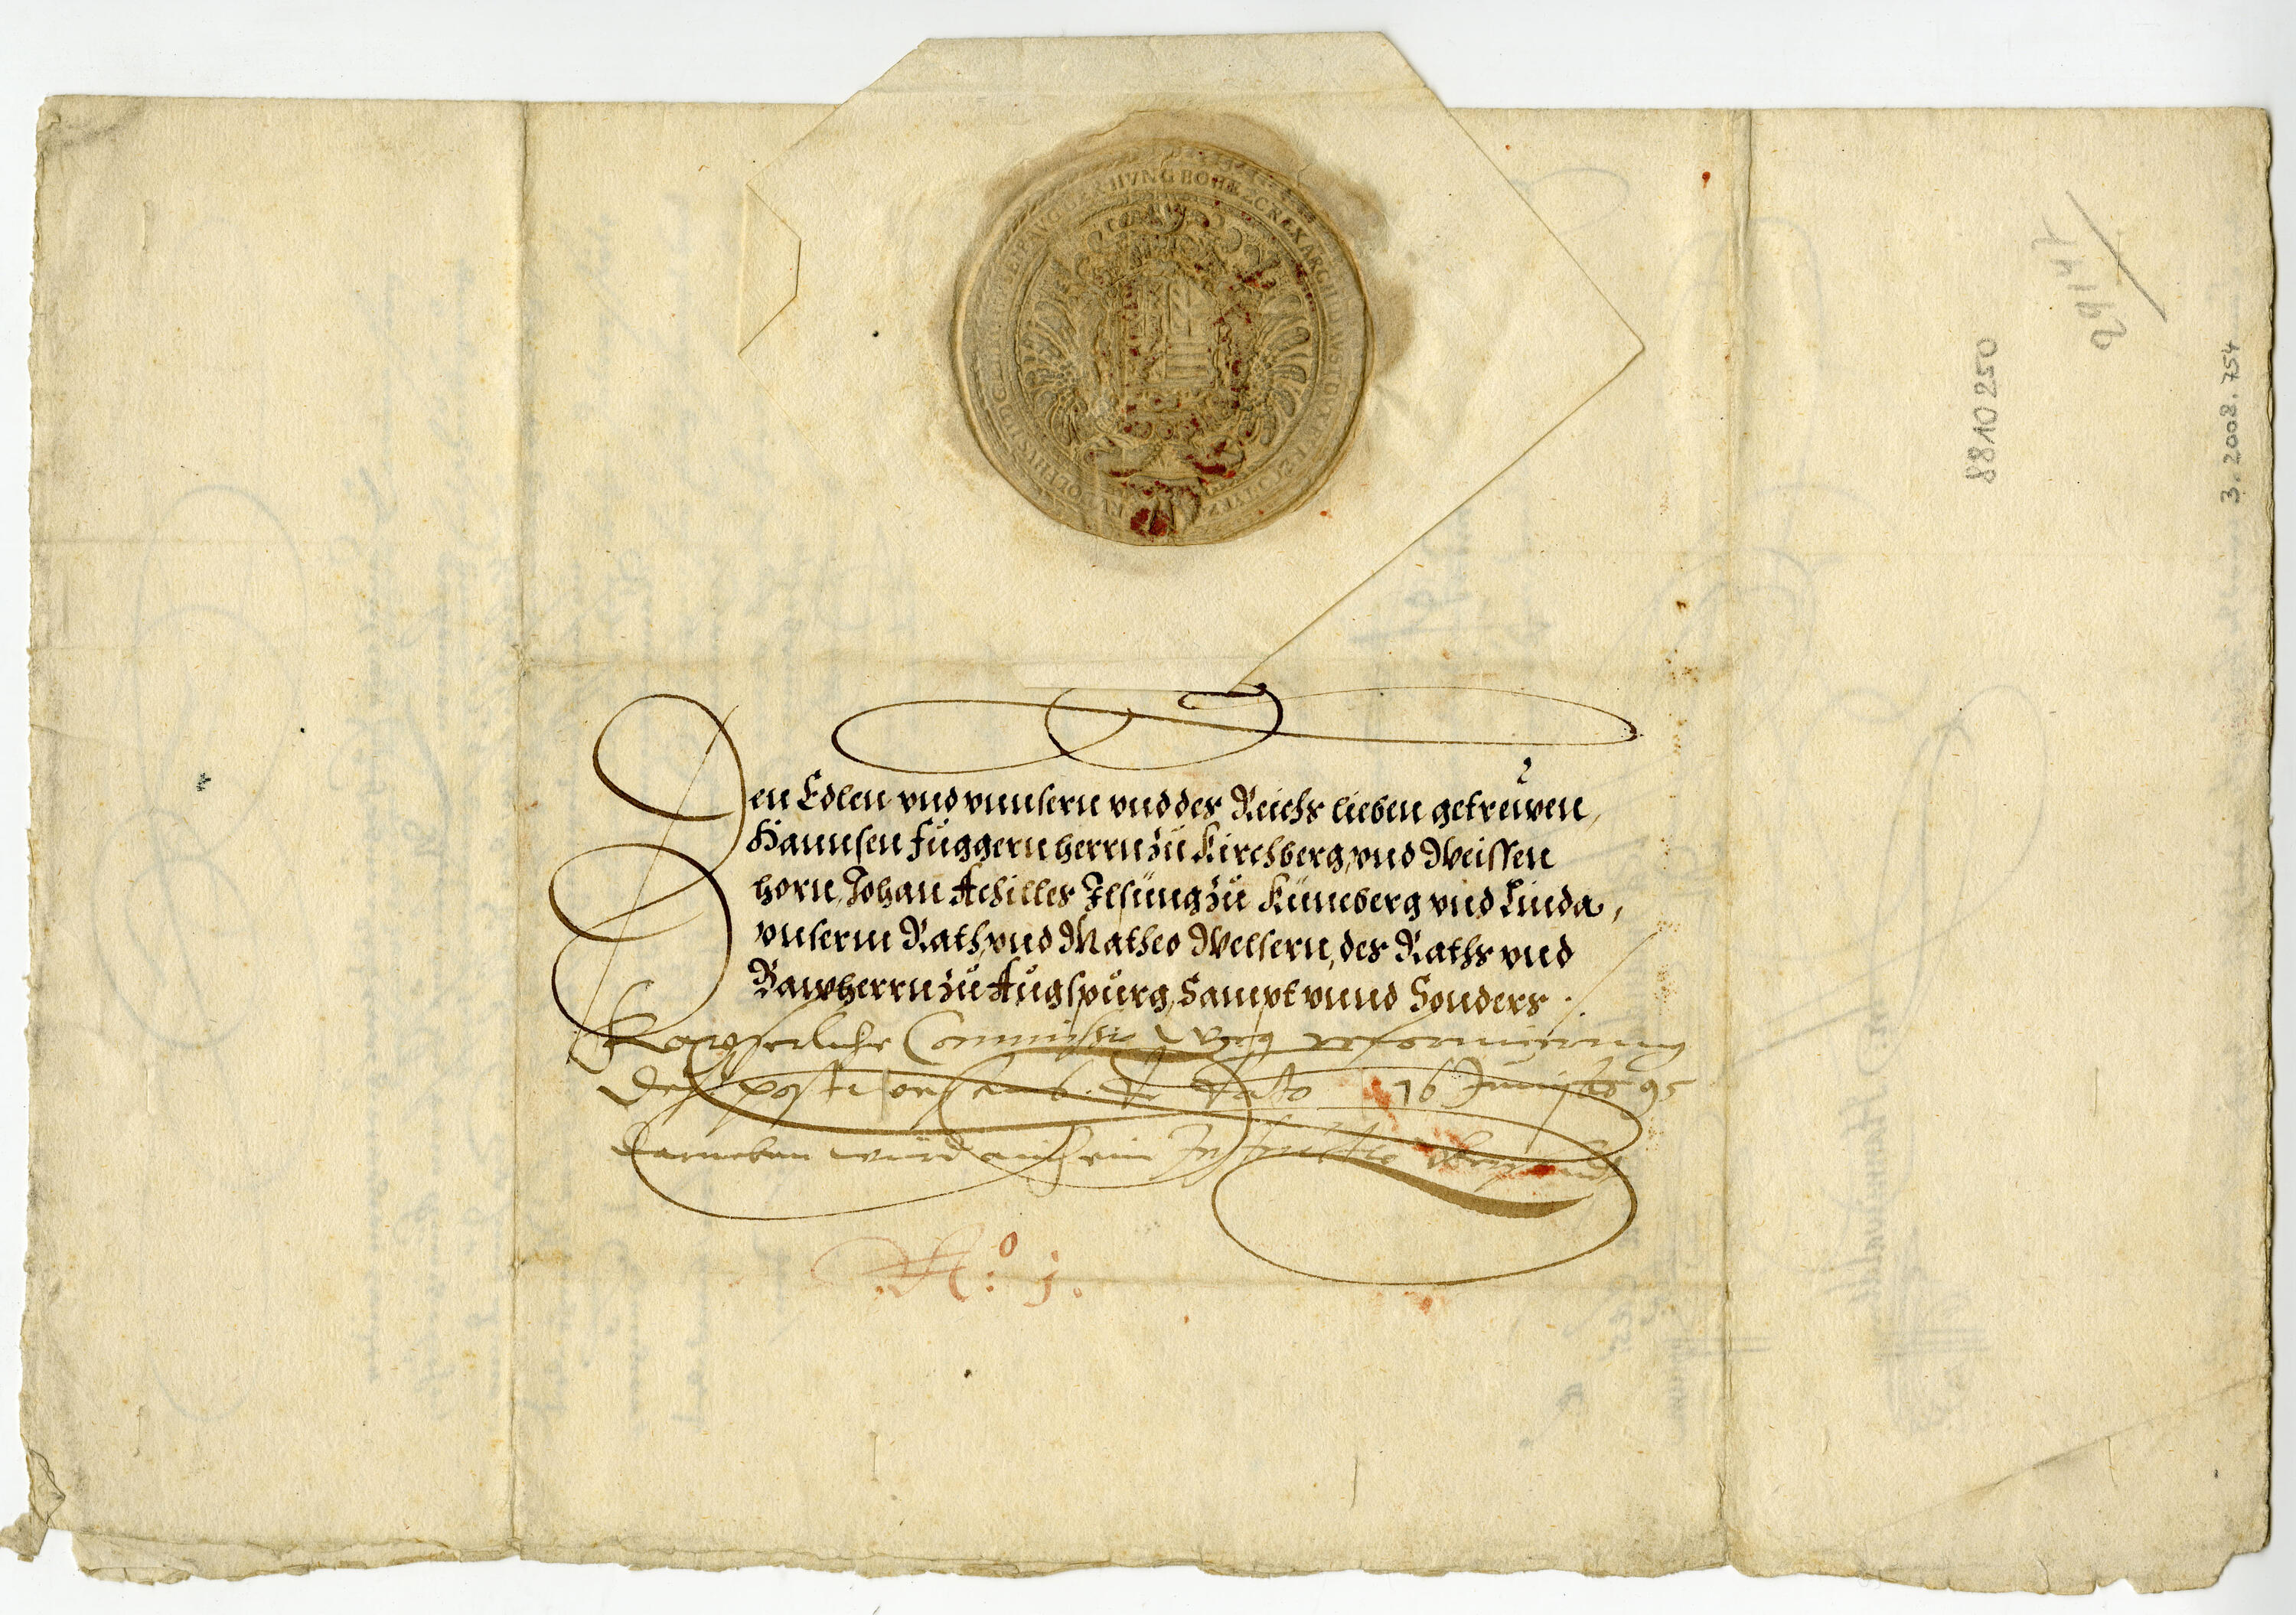 HVNG BOHE ZC REX ARCHID AVST DVX
Den Edlen vnd vnnsern vnd des Reichs lieben getrewen,
Hannsen Fuggern herrn zu Kirchberg, vnd Weissen
horn, Johan Achilles Ilsung zu Küneberg vnd Linda,
vnserm Rath, vnd Matheo Welsern, des Raths vnd
Bawherrn zu Augspurg, Sampt vnnd Sonders ./.
Kayserliche Commission weg reformierung
des postwesens de dato 16 Junij 95
darneben wird auch ein
No: 1.
8810250
3. 2008. 754